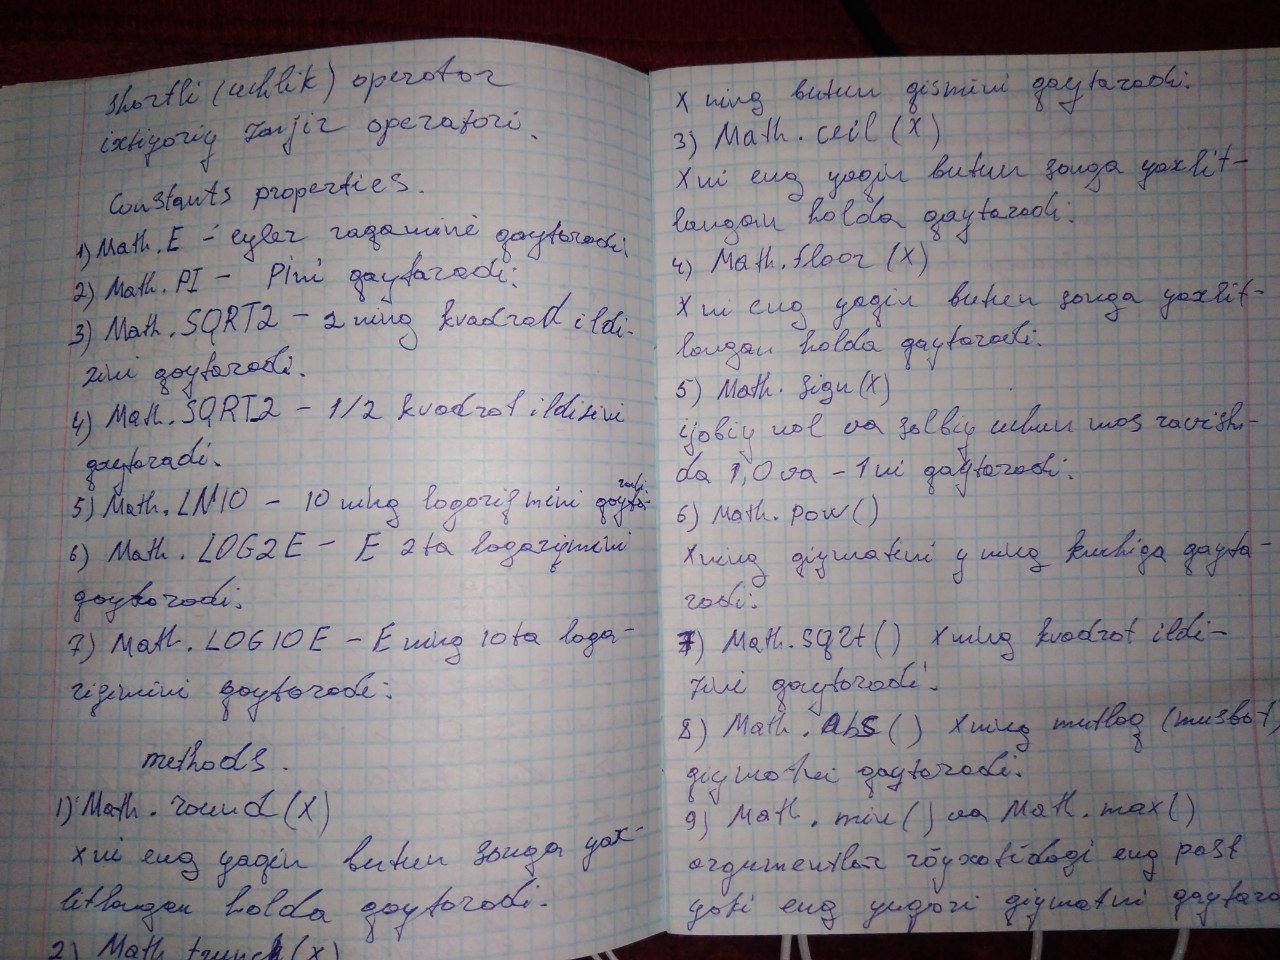 shartli (uchlik) operator
ixtiyoriy zanjir operatori.
Constants properties.
1) Math.E - eyler raqamini qaytaradi.
2) Math.PI - Pini qaytaradi.
3) Math.SQRT2 - 2 ning kvadrat ildi-
zini qaytaradi.
4) Math.SQRT2 - 1/2 kvadrat ildizini
qaytaradi.
5) Math.LN10 - 10 ning logarifmini qaytaradi
6) Math.LOG2E - E 2ta logarifmini
qaytaradi.
7) Math.LOG10E - E ning 10ta loga-
rifimini qaytaradi.
methods.
1) Math.round(X)
X ni eng yaqin butun songa yax-
litlangan holda qaytaradi.
2) Math.trunch(X)
X ning butun qismini qaytaradi.
3) Math.ceil(X)
X ni eng yaqin butun songa yaxlit-
langan holda qaytaradi.
4) Math.floor(X)
X ni eng yaqin butun songa yaxlit-
langan holda qaytaradi.
5) Math.sign(X)
ijobiy nol va salbiy uchun mos ravish-
da 1,0 va -1 ni qaytaradi.
6) Math.pow()
X ning qiymatini y ning kuchiga qayta-
radi.
7) Math.sqrt() X ning kvadrat ildi-
zini qaytaradi.
8) Math.abs() X ning mutlaq (musbat)
qiymatni qaytaradi.
9) Math.min() va Math.max()
argumentlar rōyxatidagi eng past
yoki eng yuqori qiymatni qaytara